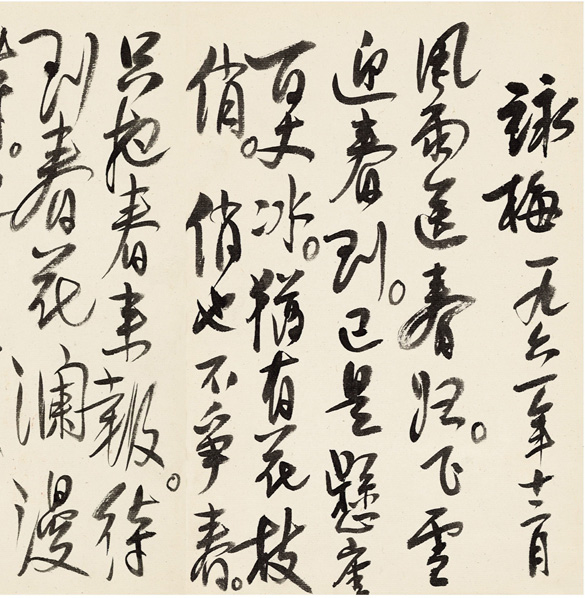 詠梅 一九六一年十二月
風雨送春归。飞雪
迎春到。已是懸崖
百丈冰。猶有花枝
俏。俏也不爭春。
只把春来報。待
到春花瀾漫